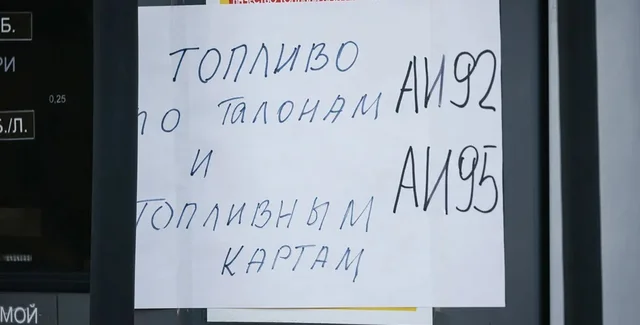 Б.
РИ
0,25
Б./Л.
МОЙ
ТОПЛИВО
ПО ТАЛОНАМ
И
ТОПЛИВНЫМ
КАРТАМ
АИ92
АИ95